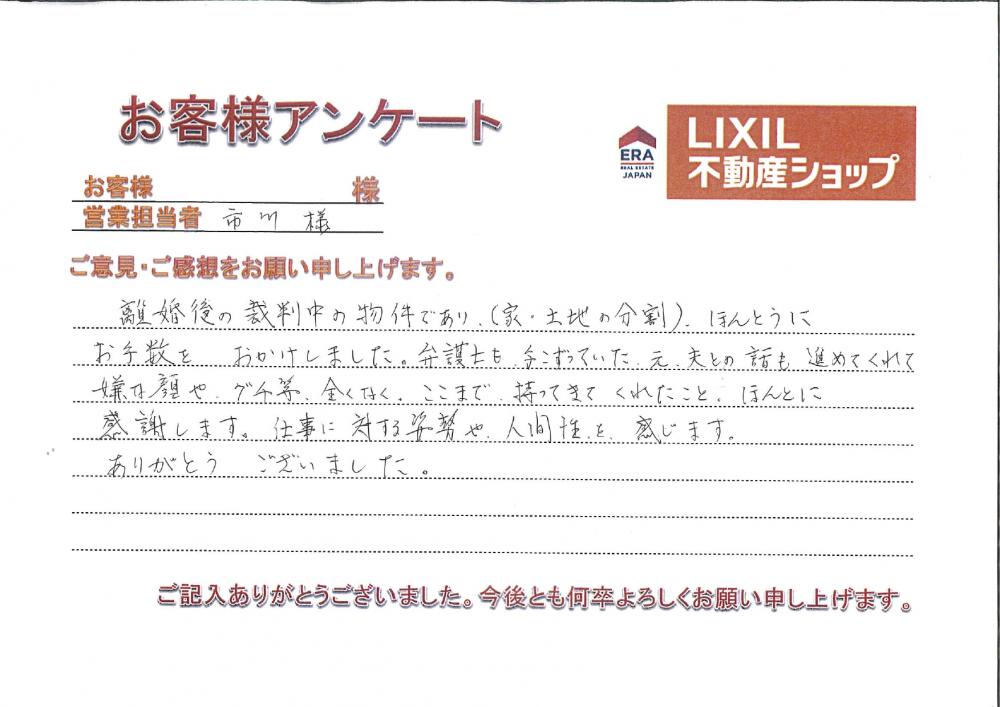 お客様アンケート
ERA
REAL ESTATE
JAPAN
LIXIL
不動産ショップ
お客様 様
営業担当者 市川 様
ご意見・ご感想をお願い申し上げます。
離婚後の裁判中の物件であり、(家・土地の分割)、ほんとうに
お手数を おかけしました。弁護士も、手こずっていた、元、夫との話も、進めてくれて
嫌な顔や、グチ等、全くなく、ここまで、持ってきて くれたこと、ほんとに
感謝します。仕事に 対する姿勢や、人間性を、感じます。
ありがとう ございました。
ご記入ありがとうございました。今後とも何卒よろしくお願い申し上げます。